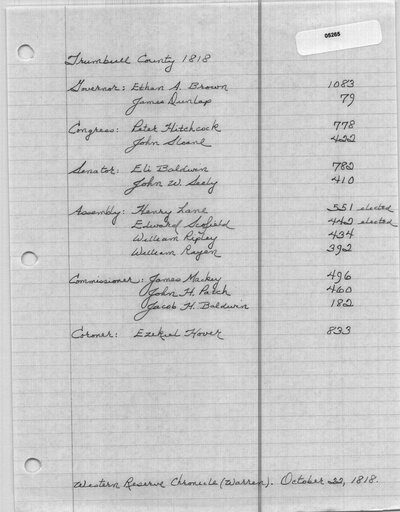 05265
Trumbull County 1818
Governor: Ethan A. Brown 1083
James Dunlap 79
Congress: Peter Hitchcock 778
John Sloane 422
Senator: Eli Baldwin 782
John W. Seely 410
Assembly: Henry Lane 551 elected
Edward Scofield 442 elected
William Ripley 434
William Rayen 392
Commissioner: James Mackey 496
John H. Patch 460
Jacob H. Baldwin 182
Coroner: Ezekiel Hover 833
Western Reserve Chronicle (Warren). October 22, 1818.